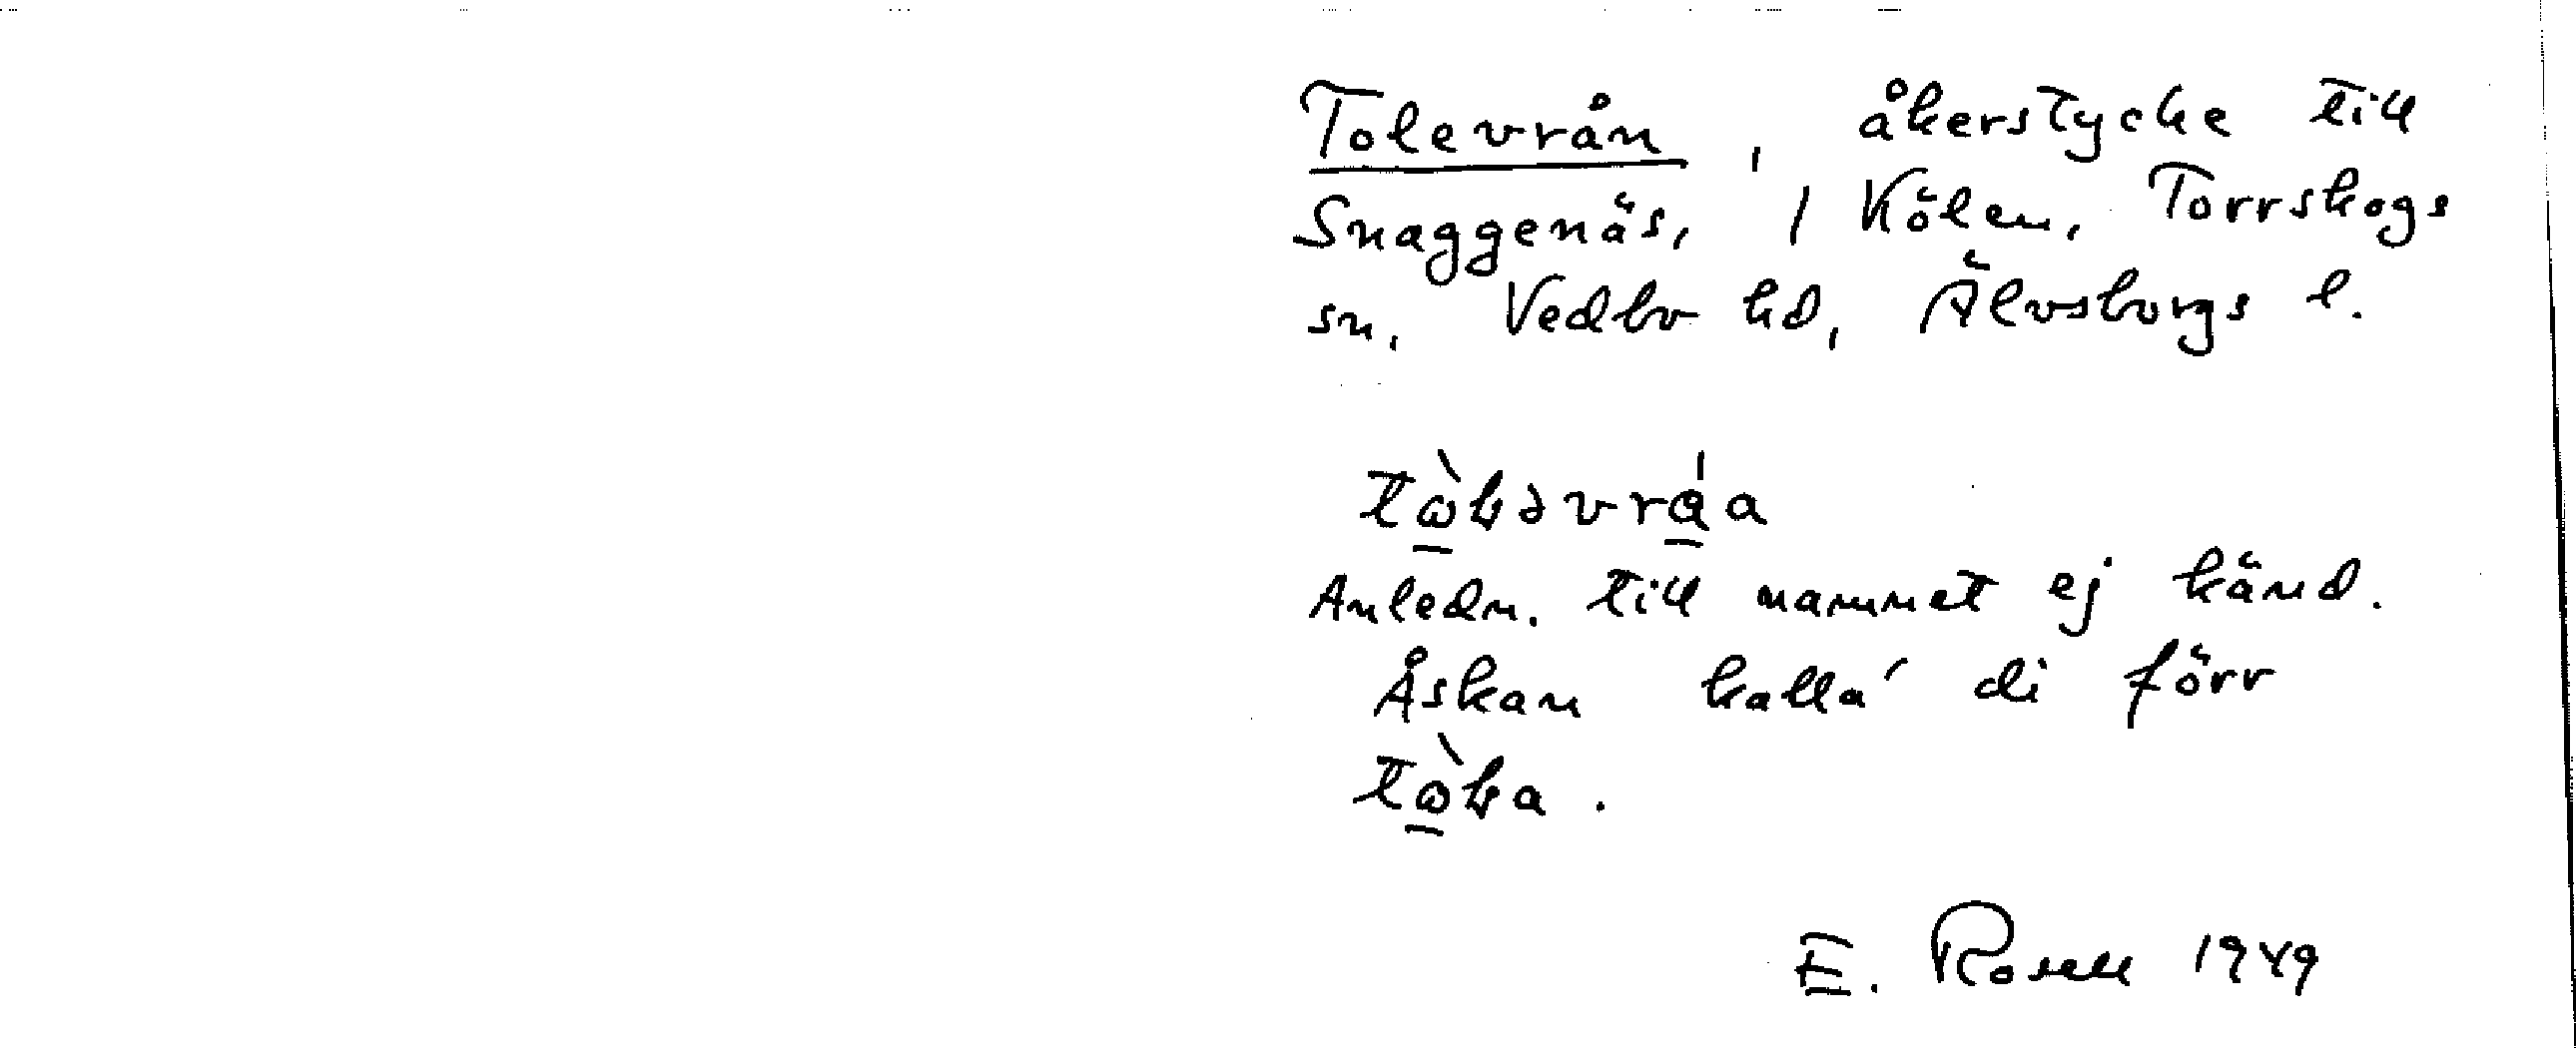 Tolevrån, åkerstycke till
Snaggenäs, i Kölen, Torrskogs
sn, Vedbo hd, Älvsborgs l.
tɷ̀ɫəvrá̱a
Anledn. till namnet ej känd.
Åskan kalla' di förr
tɷ̀ɫa.
E. Rosell 1949